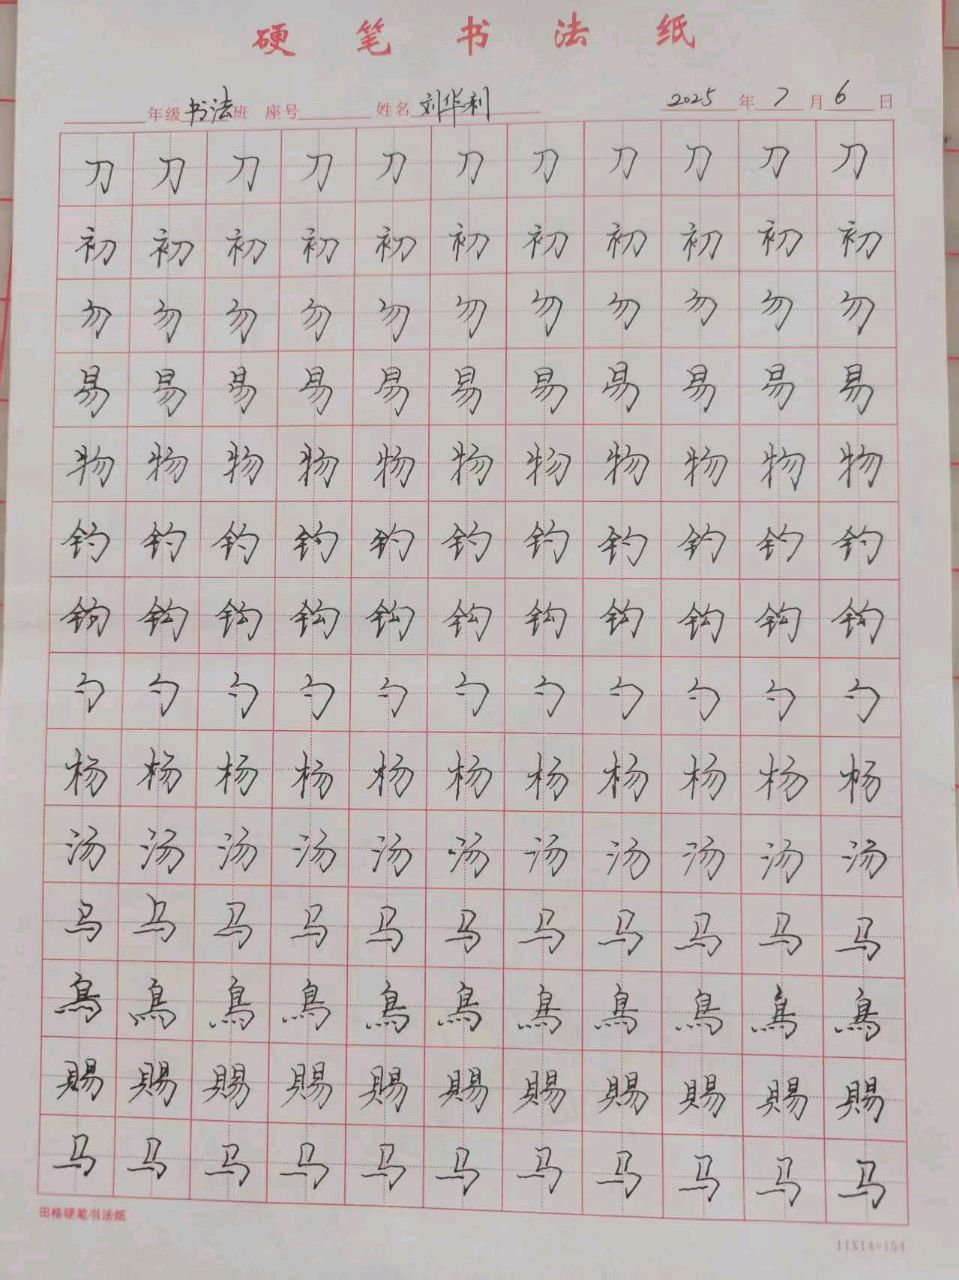 硬笔书法纸
年级书法班 座号 姓名刘华利 2025年7月6日
刀刀刀刀刀刀刀刀刀刀刀
初初初初初初初初初初初
勿勿勿勿勿勿勿勿勿勿勿
易易易易易易易易易易易
物物物物物物物物物物物
钓钓钓钓钓钓钓钓钓钓钓
钩钩钩钩钩钩钩钩钩钩钩
勺勺勺勺勺勺勺勺勺勺勺
杨杨杨杨杨杨杨杨杨杨杨
汤汤汤汤汤汤汤汤汤汤汤
马马马马马马马马马马马
鳥鳥鳥鳥鳥鳥鳥鳥鳥鳥鳥
賜賜賜賜賜賜賜賜賜賜賜
马马马马马马马马马马马
田格硬笔书法纸
11X14=154